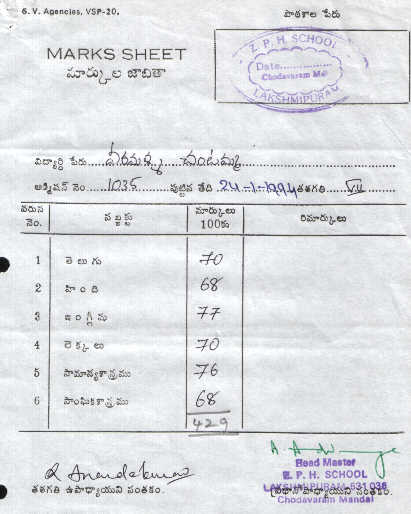 S. V. Agencies, VSP-20.
పాఠశాల పేరు
MARKS SHEET
మార్కుల జాబితా
Z. P. H. SCHOOL
Date................
Chodavaram Mdl
LAKSHMIPURAM
విద్యార్థి పేరు
అడ్మిషన్ నెం. 1035 పుట్టిన తేది 24-1-1994 తరగతి VII
వరుస నెం. సబ్జక్టు మార్కులు 100కు రిమార్కులు
1 తెలుగు 70
2 హింది 68
3 ఇంగ్లీషు 77
4 లెక్కలు 70
5 సామాన్యశాస్త్రము 76
6 సాంఘికశాస్త్రము 68
429
Head Master
Z. P. H. SCHOOL
LAKSHMIPURAM-531 036
Chodavaram Mandal
తరగతి ఉపాధ్యాయుని సంతకం.
ప్రధానోపాధ్యాయుని సంతకం.